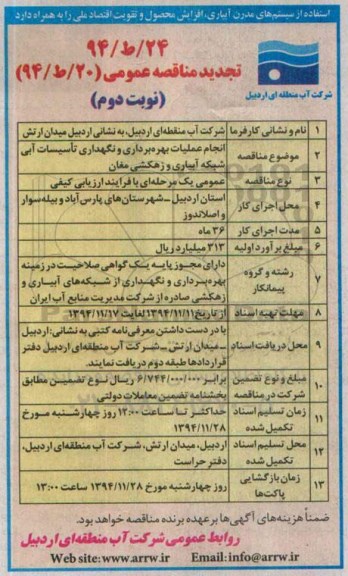 استفاده از سیستم‌های مدرن آبیاری، افزایش محصول و تقویت اقتصاد ملی را به همراه دارد
۹۴/ط/۲۴
تجدید مناقصه عمومی (۲۰/ط/۹۴)
(نوبت دوم)
شرکت آب منطقه ای اردبیل
۱ نام و نشانی کارفرما شرکت آب منقطه‌ای اردبیل، به نشانی اردبیل میدان ارتش
۲ موضوع مناقصه انجام عملیات بهره‌برداری و نگهداری تأسیسات آبی
شبکه آبیاری و زهکشی مغان
۳ نوع مناقصه عمومی یک مرحله‌ای با فرایند ارزیابی کیفی
۴ محل اجرای کار استان اردبیل ــ شهرستان‌های پارس‌آباد و بیله‌سوار
و اصلاندوز
۵ مدت اجرای کار ۳۶ ماه
۶ مبلغ برآورد اولیه ۳۱۳ میلیارد ریال
۷ رشته و گروه
پیمانکار دارای مجوز پایه یک گواهی صلاحیت در زمینه
بهره‌برداری و نگهداری از شبکه‌های آبیاری و
زهکشی صادره از شرکت مدیریت منابع آب ایران
۸ مهلت تهیه اسناد از تاریخ ۱۳۹۴/۱۱/۱۱ لغایت ۱۳۹۴/۱۱/۱۷
۹ محل دریافت اسناد با در دست داشتن معرفی‌نامه کتبی به نشانی: اردبیل
ــ میدان ارتش ــ شرکت آب منطقه‌ای اردبیل دفتر
قراردادها طبقه دوم دریافت نمایند.
۱۰ مبلغ و نوع تضمین
شرکت در مناقصه برابر ۶/۷۴۴/۰۰۰/۰۰۰ ریال نوع تضمین مطابق
بخشنامه تضمین معاملات دولتی
۱۱ زمان تسلیم اسناد
تکمیل شده حداکثر تا ساعت ۱۲:۰۰ روز چهارشنبه مورخ
۱۳۹۴/۱۱/۲۸
۱۲ محل تسلیم اسناد
تکمیل شده اردبیل، میدان ارتش، شرکت آب منطقه‌ای اردبیل،
دفتر حراست
۱۳ زمان بازگشایی
پاکت‌ها روز چهارشنبه مورخ ۱۳۹۴/۱۱/۲۸ ساعت ۱۳:۰۰
ضمناً هزینه‌های آگهی‌ها بر عهده برنده مناقصه خواهد بود.
روابط عمومی شرکت آب منطقه‌ای اردبیل
Web site: www.arrw.ir Email: info@arrw.ir